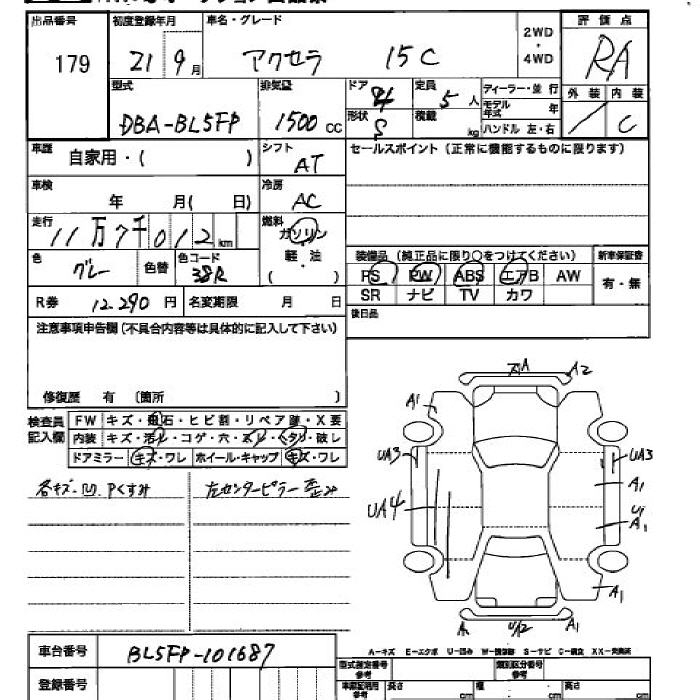 出品番号 初度登録年月 車名・グレード 2WD・4WD 評価点
179 21 9月 アクセラ 15C RA
型式 排気量 ドア 定員 ディーラー・並行 外装 内装
4 5人 モデル年式 年
DBA-BL5FP 1500cc 形状 S 積載 kg ハンドル 左・右 / C
車歴 自家用・( ) シフト AT セールスポイント (正常に機能するものに限ります)
車検 年 月( 日) 冷房 AC
走行 11万7千012km 燃料 ガソリン 軽・油 ( )
装備品 (純正品に限り○をつけてください) 新車保証書
色 グレー 色替 色コード 38R
PS PW ABS エアB AW 有・無
SR ナビ TV カワ
R券 12,290円 名変期限 月 日 後日品
注意事項申告欄(不具合内容等は具体的に記入して下さい)
修復歴 有 〔箇所 〕
検査員記入欄 FW キズ・飛石・ヒビ割・リペア跡・X要
内装 キズ・汚レ・コゲ・穴・スレ・ヘタリ・破レ
ドアミラー キズ・ワレ ホイール・キャップ キズ・ワレ
各キズ・凹 Pくすみ 左センターピラー歪み
A A2
A1
UA3 UA3
A1
UA4 U1
A1
A1
A UA2
A-キズ E-エクボ U-凹み W-補修跡 S-サビ C-腐食 XX-交換済
車台番号 BL5FP-101687
型式指定番号 参考 類別区分番号 参考
登録番号 長さ cm 幅 cm 高さ cm